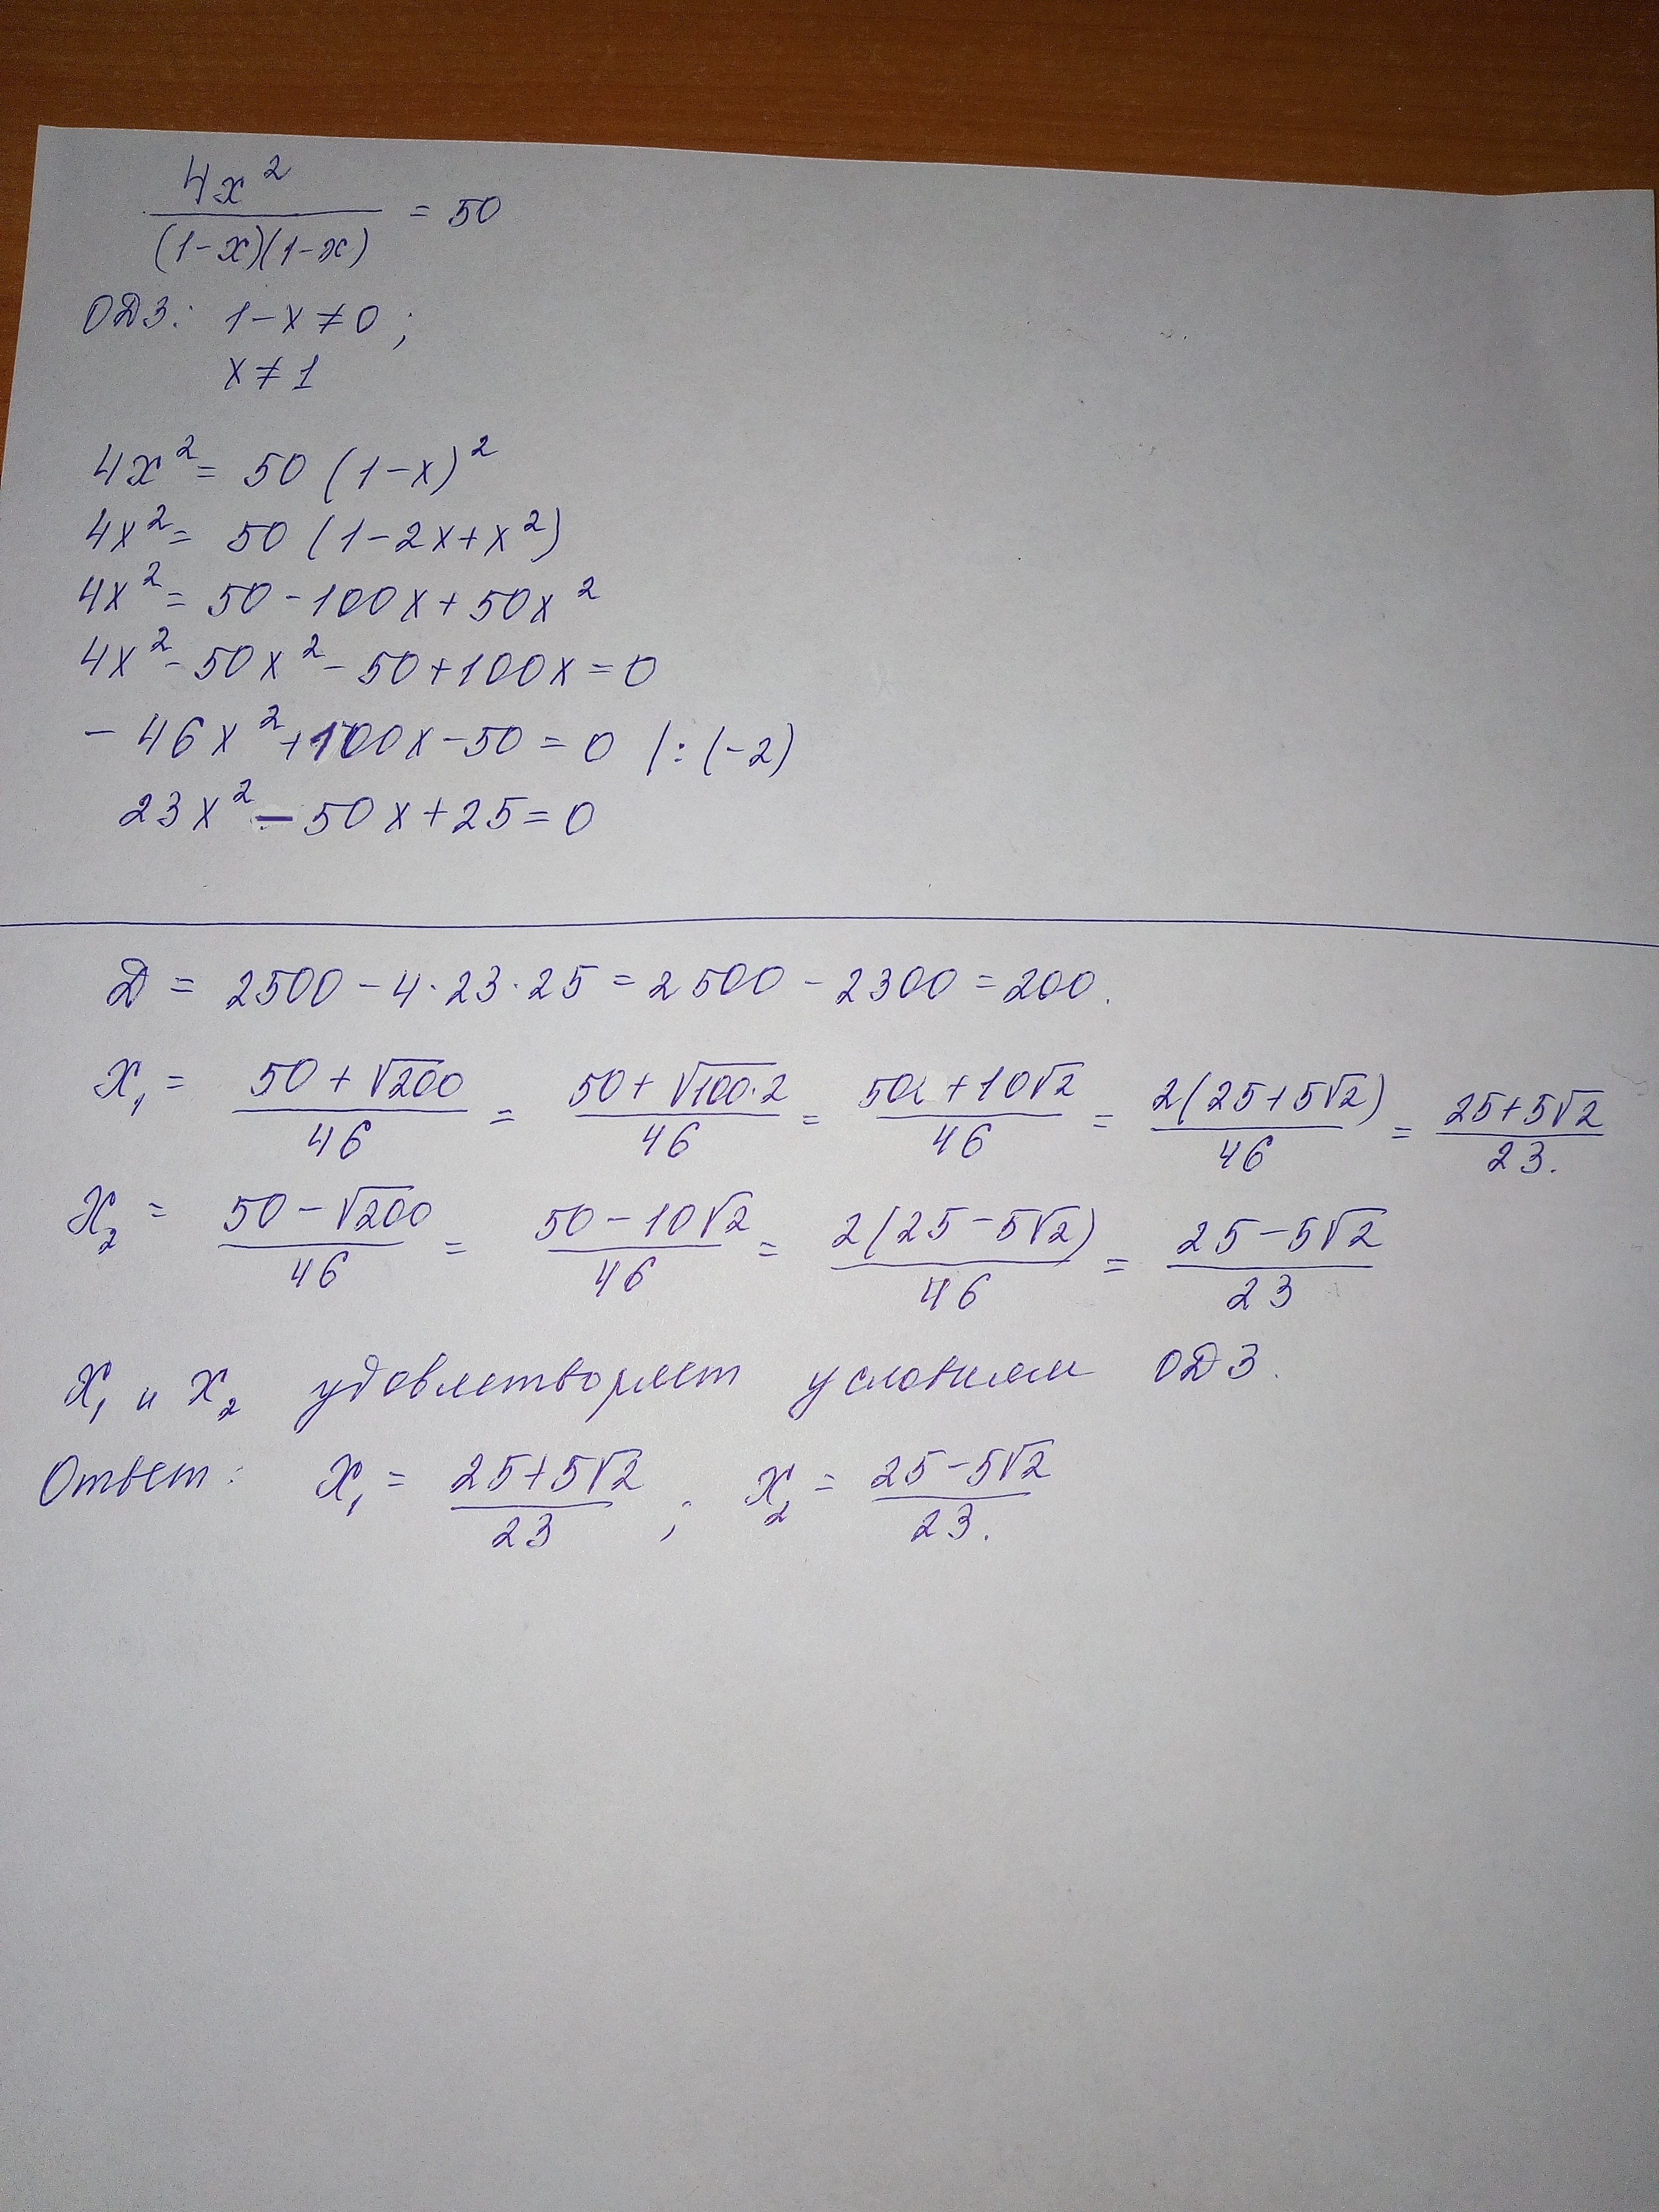 4x² / (1-x)(1-x) = 50
ОДЗ: 1-x ≠ 0;
x ≠ 1
4x² = 50 (1-x)²
4x² = 50 (1-2x+x²)
4x² = 50-100x+50x²
4x²-50x²-50+100x=0
-46x²+100x-50=0 |:(-2)
23x²-50x+25=0
Д = 2500-4·23·25=2500-2300=200.
x₁ = (50+√200)/46 = (50+√100·2)/46 = (50+10√2)/46 = 2(25+5√2)/46 = (25+5√2)/23.
x₂ = (50-√200)/46 = (50-10√2)/46 = 2(25-5√2)/46 = (25-5√2)/23
x₁ и x₂ удовлетворяет условиям ОДЗ.
Ответ: x₁ = (25+5√2)/23; x₂ = (25-5√2)/23.